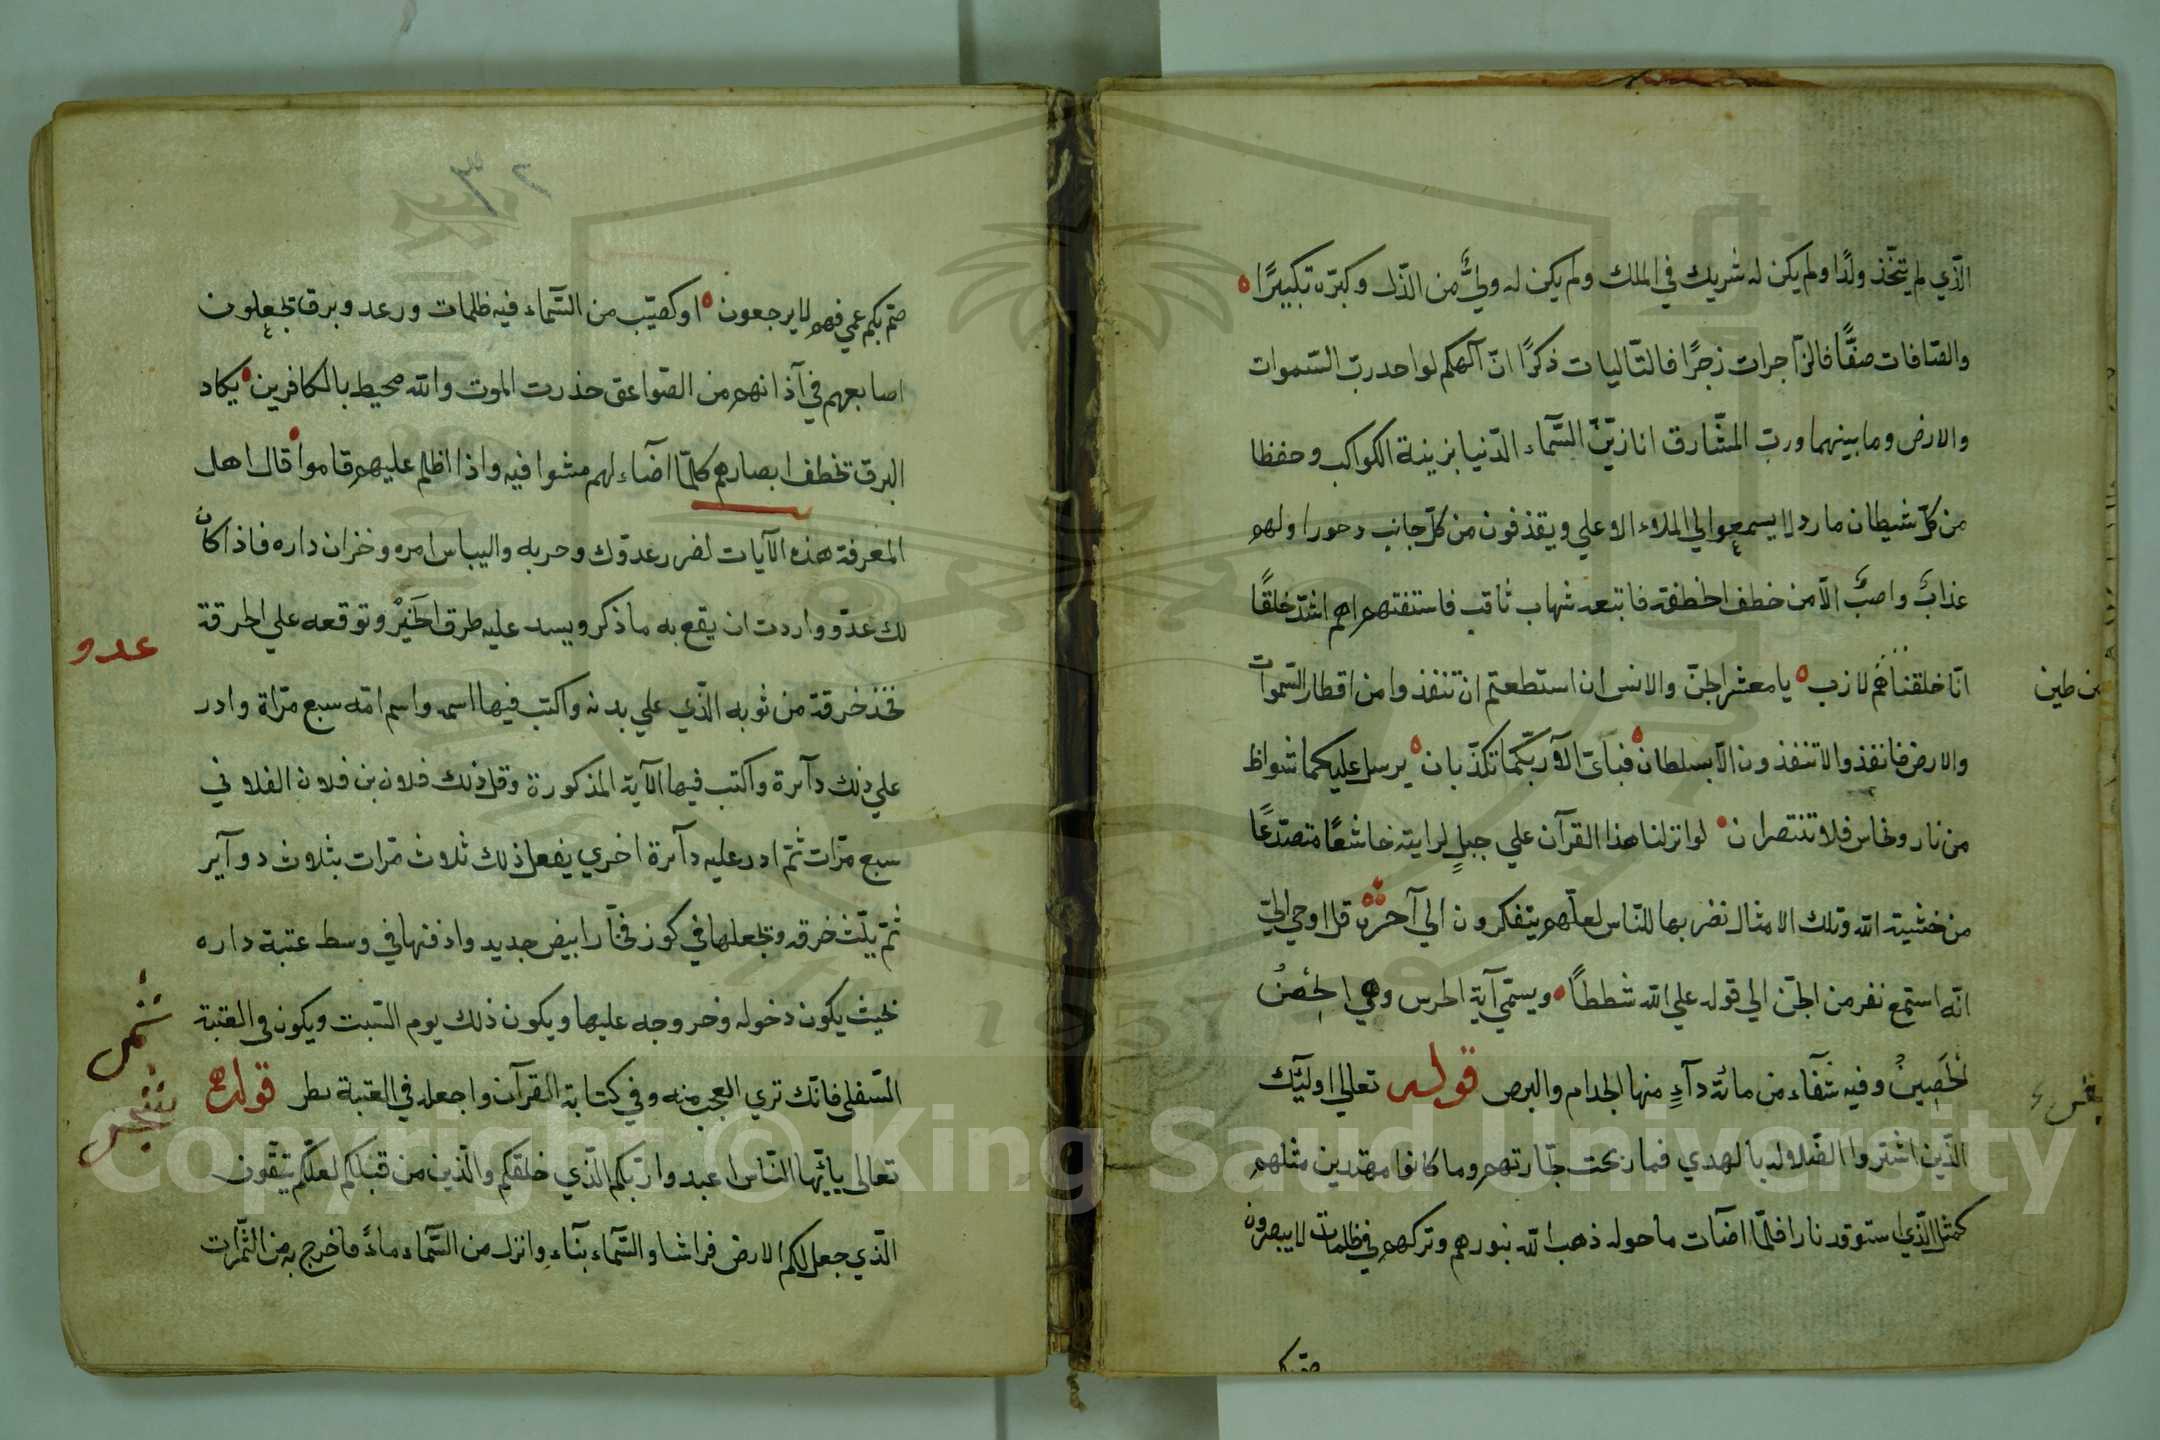 الّذي لم يتّخذ ولدًا ولم يكن له شريك في الملك ولم يكن له وليٌّ من الذّل وكبّره تكبيرًا
والصّافات صفًّا فالزآجرات زجرًا فالتّاليات ذكرًا انّ الهكم لواحد ربّ السّموات
والارض وما بينهما وربّ المشارق انا زيّنّ السّماء الدّنيا بزينة الكواكب وحفظا
من كلّ شيطان مارد لا يسمعوا الي الملاء الاعلي ويقذفون من كلّ جانب دحورا ولهم
عذابٌ واصبٌ الاّ من خطف الخطفة فاتبعه شهاب ثاقب فاستفتهم اهم اشدّ خلقًا
انّا خلقناهم لازب يا معشر الجنّ والانس ان استطعتم ان تنفذوا من اقطار السّموات
من طين
والارض فانفذوا لا تنفذون الاّ بسلطان فبايّ الآء ربّكما تكذّبان يرسل عليكما شواظ
من نار ونحاس فلا تنتصران لو انزلنا هذا القرآن علي جبلٍ لرايته خاشعًا متصدّعًا
من خشية الله وتلك الامثال نضربها للنّاس لعلّهم يتفكرون الي آخره قل اوحي اليّ
انّه استمع نفر من الجنّ الي قوله علي الله شططًا ويسمّي آية الحرس وهي الحِصْنُ
الحَصِينُ وفيه شفآء من مائة دآءٍ منها الجدام والبرص قوله تعالي اوليٓك
الّذين اشتروا الضّلاله بالهدي فما ربحت تجّارتهم وما كانوا مهتدين مثلهم
كمثل الّذي استوقد نارا فلمّا اضآت ما حوله ذهب الله بنورهم وتركهم في ظلمات لا يبصرون
صمّ بكم
٢
صمّ بكم عمي فهم لا يرجعون او كصيّب من السّماء فيه ظلمات ورعد وبرق تجعلون
اصابعهم في آذانهم من الصّواعق حذرت الموت والله محيط بالكافرين يكاد
البرق تخطف ابصارهم كلّما اضآء لهم مشوا فيه واذا اظلم عليهم قاموا قال اهل
المعرفة هذه الآيات لضرر عدوّك وحربه والباس امره وخزان داره فاذا كان
لك عدّو واردت ان يقع به ما ذكر ويسد عليه طرق الخَيْر وتوقعه علي الحرقة
عدو
فخذ خرقة من ثوبه الّذي علي بدنه واكتب فيها اسمه واسم امّه سبع مرّاة وادر
علي ذلك دآئرة واكتب فيها الآية المذكورة وقل ذلك فلان بن فلان الفلاني
سبع مرّات ثمّ ادر عليه دآئرة اخري يفعل ذلك ثلاث مرّات بثلاث دوآير
ثمّ يلّث خرقه وتجعلها في كوز فخّار ابيض جديد وادفنها في وسط عتبة داره
بحيث يكون دخوله وخروجه عليها ويكون ذلك يوم السّبت ويكون في العتبة
السّفلي فانّك تري العجب منه وفي كتابة القرآن واجعله في العتبة قوله
تعالي يايّها النّاس اعبدوا ربّكم الّذي خلقكم والّذين من قبلكم لعلّكم تتّقون
الّذي جعل لكم الارض فراشا والسّماء بنآء وانزل من السّماء ماءً فاخرج به من الثّمرات
Copyright © King Saud University
1957